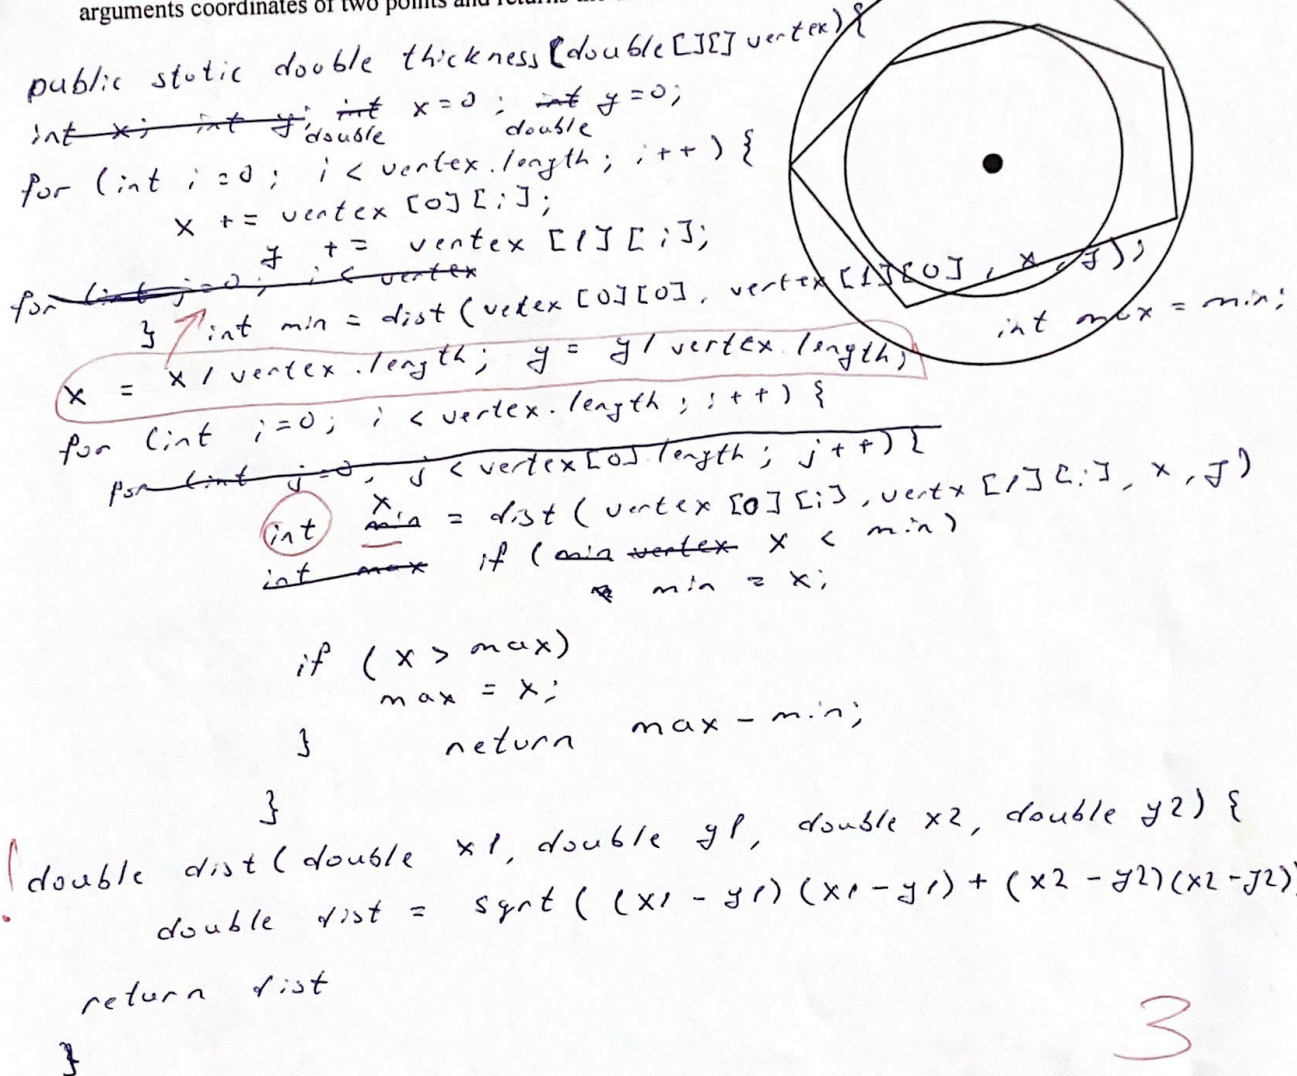 arguments coordinates of two points and returns the
public static double thickness(double[][] vertex){
int x; int y; int x=0; int y=0;
double double
for (int i=0; i < vertex.length; i++) {
x += vertex [0][i];
y += vertex [1][i];
for (int j=0; i < vertex
} int min = dist (vetex [0][0], vertex [1][0], x, y);
int max = min;
x = x / vertex.length; y = y / vertex.length;
for (int i=0; i < vertex.length; i++) {
for (int j=0, j < vertex[0].length; j++) {
int min x = dist ( vertex [0][i], vertx [1][i], x, y)
int max if (min vertex x < min)
min = x;
if (x > max)
max = x;
} return max - min;
}
! double dist (double x1, double y1, double x2, double y2) {
double dist = sqrt ( (x1 - y1) (x1 - y1) + (x2 - y2) (x2 - y2)
return dist
}
3